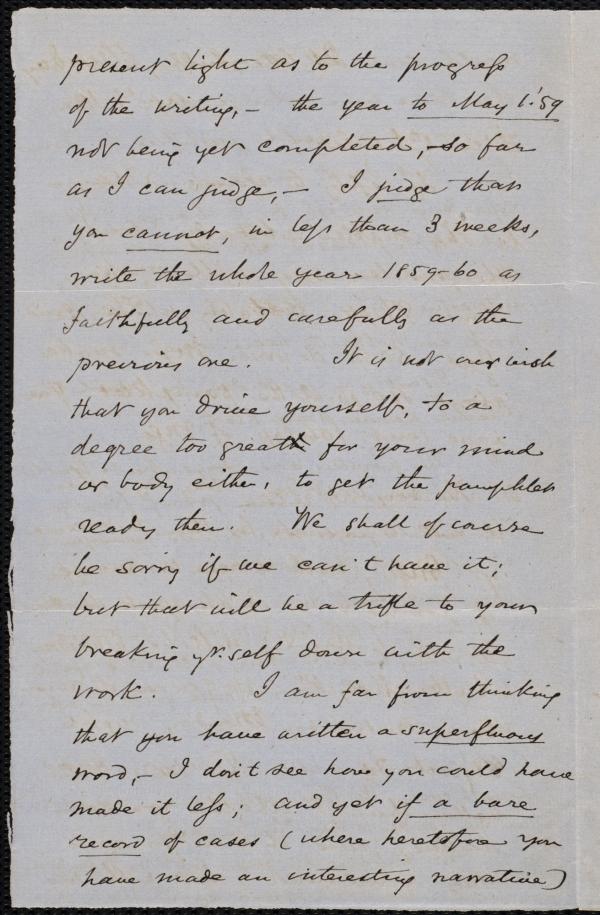 present light as to the progress
of the writing, - the year to May 1. '59
not being yet completed, - so far
as I can judge, - I judge that
you cannot, in less than 3 weeks,
write the whole year 1859-60 as
faithfully and carefully as the
previous one. It is not our wish
that you drive yourself, to a
degree too great for your mind
or body either, to get the pamphlet
ready then. We shall of course
be sorry if we can't have it;
but that will be a trifle to your
breaking yr.self down with the
work. I am far from thinking
that you have written a superfluous
word, - I don't see how you could have
made it less; and yet if a bare
record of cases (where heretofore you
have made an interesting narrative)